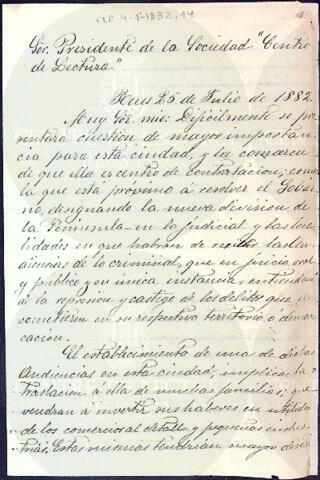 CLP 4-1-1882, 14
Sor. Presidente de la Sociedad "Centro
de Lectura"
Reus 25 de Julio de 1882.
Muy Sor. mio: Dificilmente se pre-
sentará cuestion de mayor importan-
cia para esta ciudad, y la comarca
de que ella es centro de contratacion, como
la que está próximo á resolver el Gobier-
no, designando la nueva division de
la Península en lo judicial y las loca-
lidades en que habrán de residir las Au-
diencias de lo criminal, que en juicio oral
y público y en única instancia, entenderán
en la represion y castigo de los delitos que se
cometieren en su respectivo territorio ó demar-
cacion.
El establecimiento de una de dichas
Audiencias en esta ciudad, implica la
traslacion á ella de muchas familias, que
vendrán á invertir sus haberes en utilidad
de los comercios al detall y pequeñas indus-
trias. Estas mismas tendrian mayor